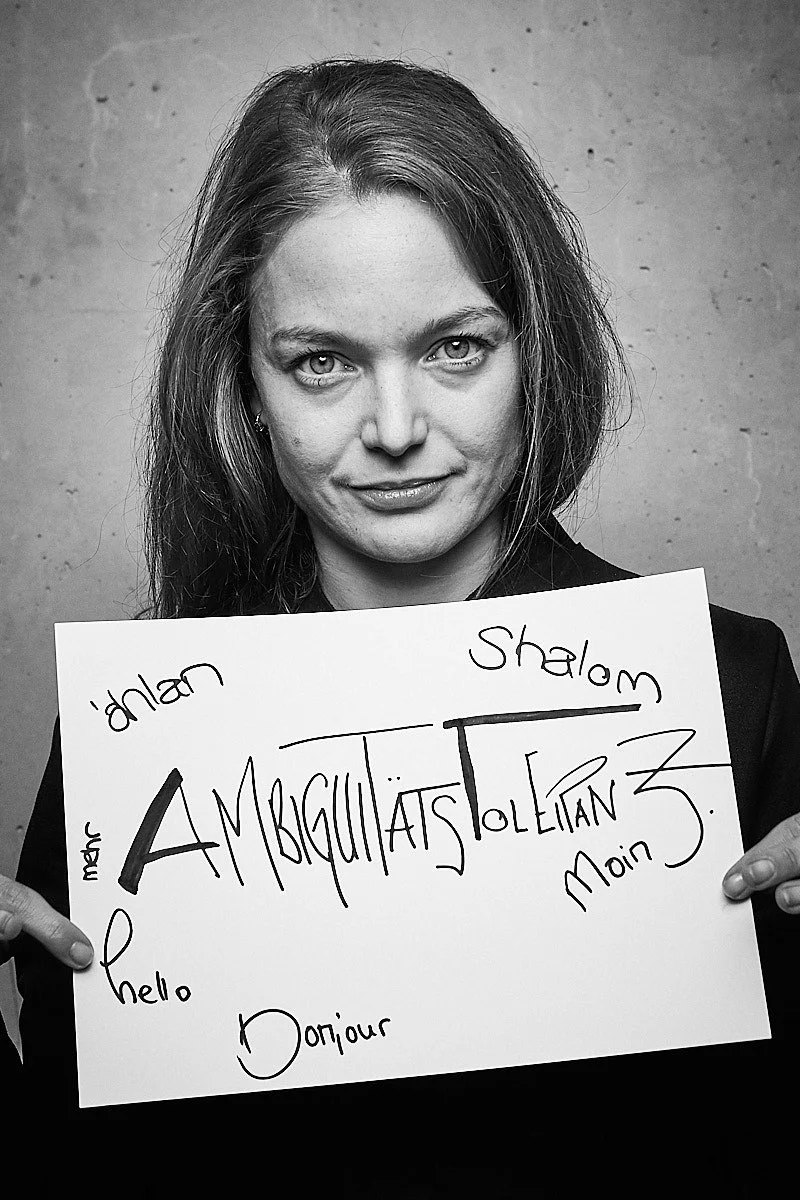 'ahlan
Shalom
mehr
AMBIGUITÄTSTOLERANZ.
Moin
hello
Bonjour